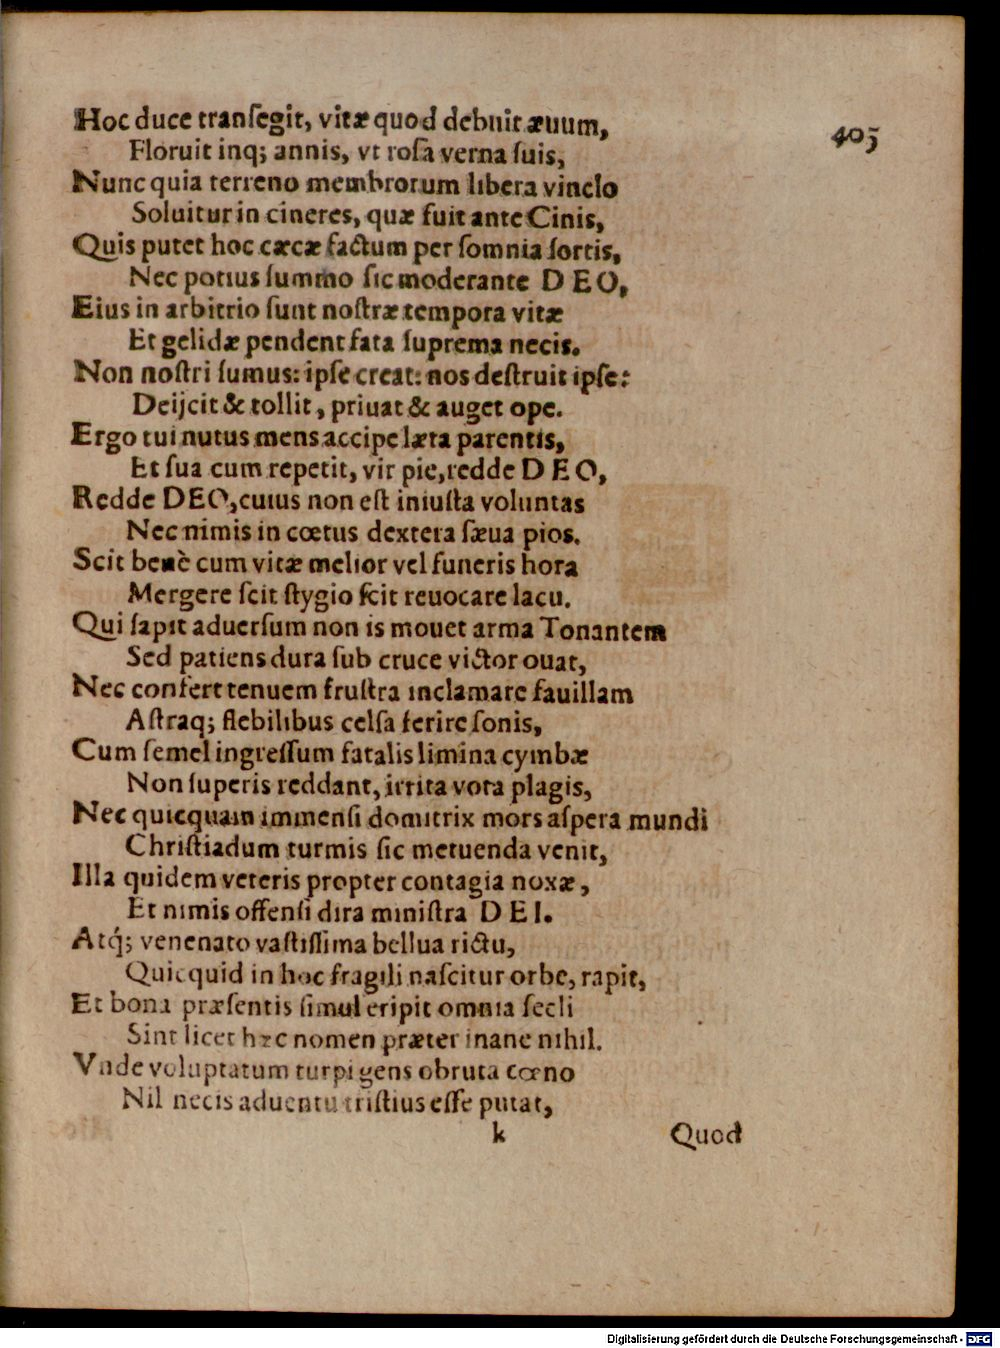 Hoc duce tranſegit, vitæ quod debuit æuum,
405
Floruit inq; annis, vt roſa verna ſuis,
Nunc quia terreno membrorum libera vinclo
Soluitur in cineres, quæ fuit ante Cinis,
Quis putet hoc cæcæ factum per ſomnia ſortis,
Nec potius ſummo ſic moderante DEO,
Eius in arbitrio ſunt noſtræ tempora vitæ
Et gelidæ pendent fata ſuprema necis.
Non noſtri ſumus: ipſe creat: nos deſtruit ipſe:
Deijcit & tollit, priuat & auget ope.
Ergo tui nutus mens accipe læta parentis,
Et ſua cum repetit, vir pie, redde DEO,
Redde DEO, cuius non eſt iniuſta voluntas
Nec nimis in cœtus dextera ſæua pios.
Scit benè cum vitæ melior vel funeris hora
Mergere ſcit ſtygio ſcit reuocare lacu.
Qui ſapit aduerſum non is mouet arma Tonantem
Sed patiens dura ſub cruce victor ouat,
Nec confert tenuem fruſtra inclamare fauillam
Aſtraq; flebilibus celſa ferire ſonis,
Cum ſemel ingreſſum fatalis limina cymbæ
Non ſuperis reddant, irrita vota plagis,
Nec quicquam immenſi domitrix mors aſpera mundi
Chriſtiadum turmis ſic metuenda venit,
Illa quidem veteris propter contagia noxæ,
Et nimis offenſi dira miniſtra DEI.
Atq́; venenato vaſtiſſima bellua rictu,
Quicquid in hoc fragili naſcitur orbe, rapit,
Et bona præſentis ſimul eripit omnia ſecli
Sint licet hæc nomen præter inane nihil.
Vnde voluptatum turpi gens obruta cœno
Nil necis aduentu triſtius eſſe putat,
k
Quod
Digitalisierung gefördert durch die Deutsche Forschungsgemeinschaft - DFG